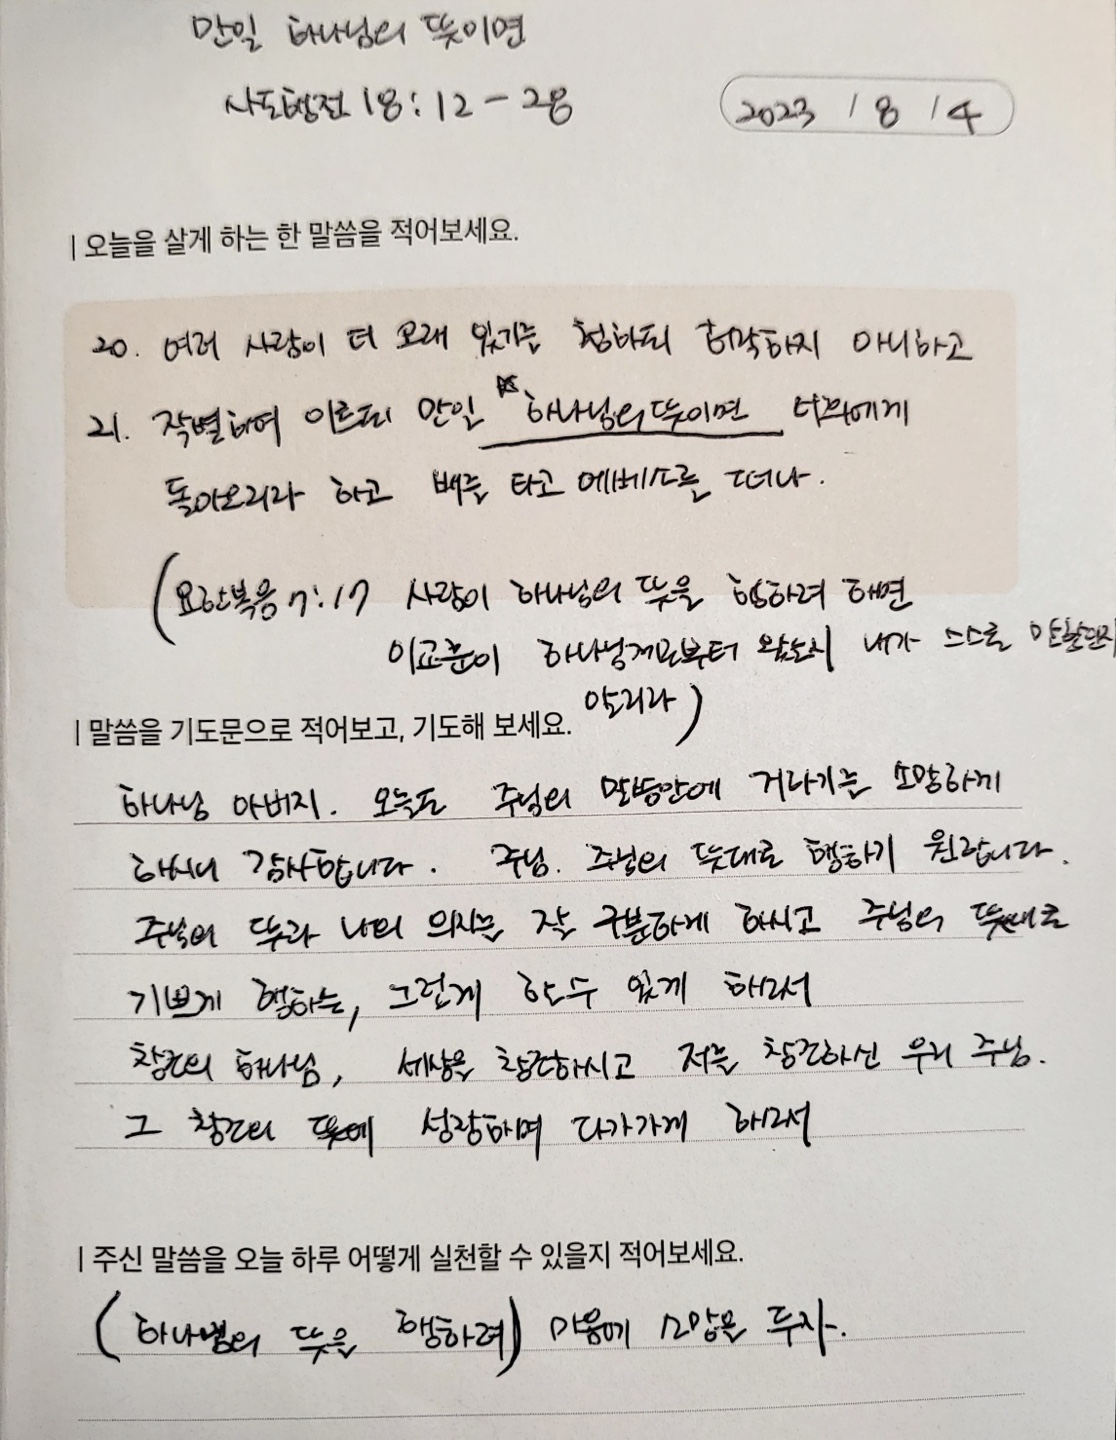 만일 하나님의 뜻이면
사도행전 18:12-28
2023 / 8 / 4
| 오늘을 살게 하는 한 말씀을 적어보세요.
20. 여러 사람이 더 오래 있기를 청하되 허락하지 아니하고
21. 작별하여 이르되 만일 하나님의 뜻이면 너희에게
돌아오리라 하고 배를 타고 에베소를 떠나.
(요한복음 7:17 사람이 하나님의 뜻을 행하려 하면
이 교훈이 하나님께로부터 왔는지 내가 스스로 말함인지
알리라)
| 말씀을 기도문으로 적어보고, 기도해 보세요.
하나님 아버지. 오늘도 주님의 말씀안에 거하기를 소망하게
하시니 감사합니다. 주님. 주님의 뜻대로 행하기 원합니다.
주님의 뜻과 나의 의지를 잘 구분하게 하시고 주님의 뜻대로
기쁘게 행하는, 그런게 할 수 있게 하소서
창조의 하나님, 세상을 창조하시고 저를 창조하신 우리 주님.
그 창조의 뜻에 성장하며 다가가게 하소서
| 주신 말씀을 오늘 하루 어떻게 실천할 수 있을지 적어보세요.
(하나님의 뜻을 행하려) 마음에 소망을 두자.